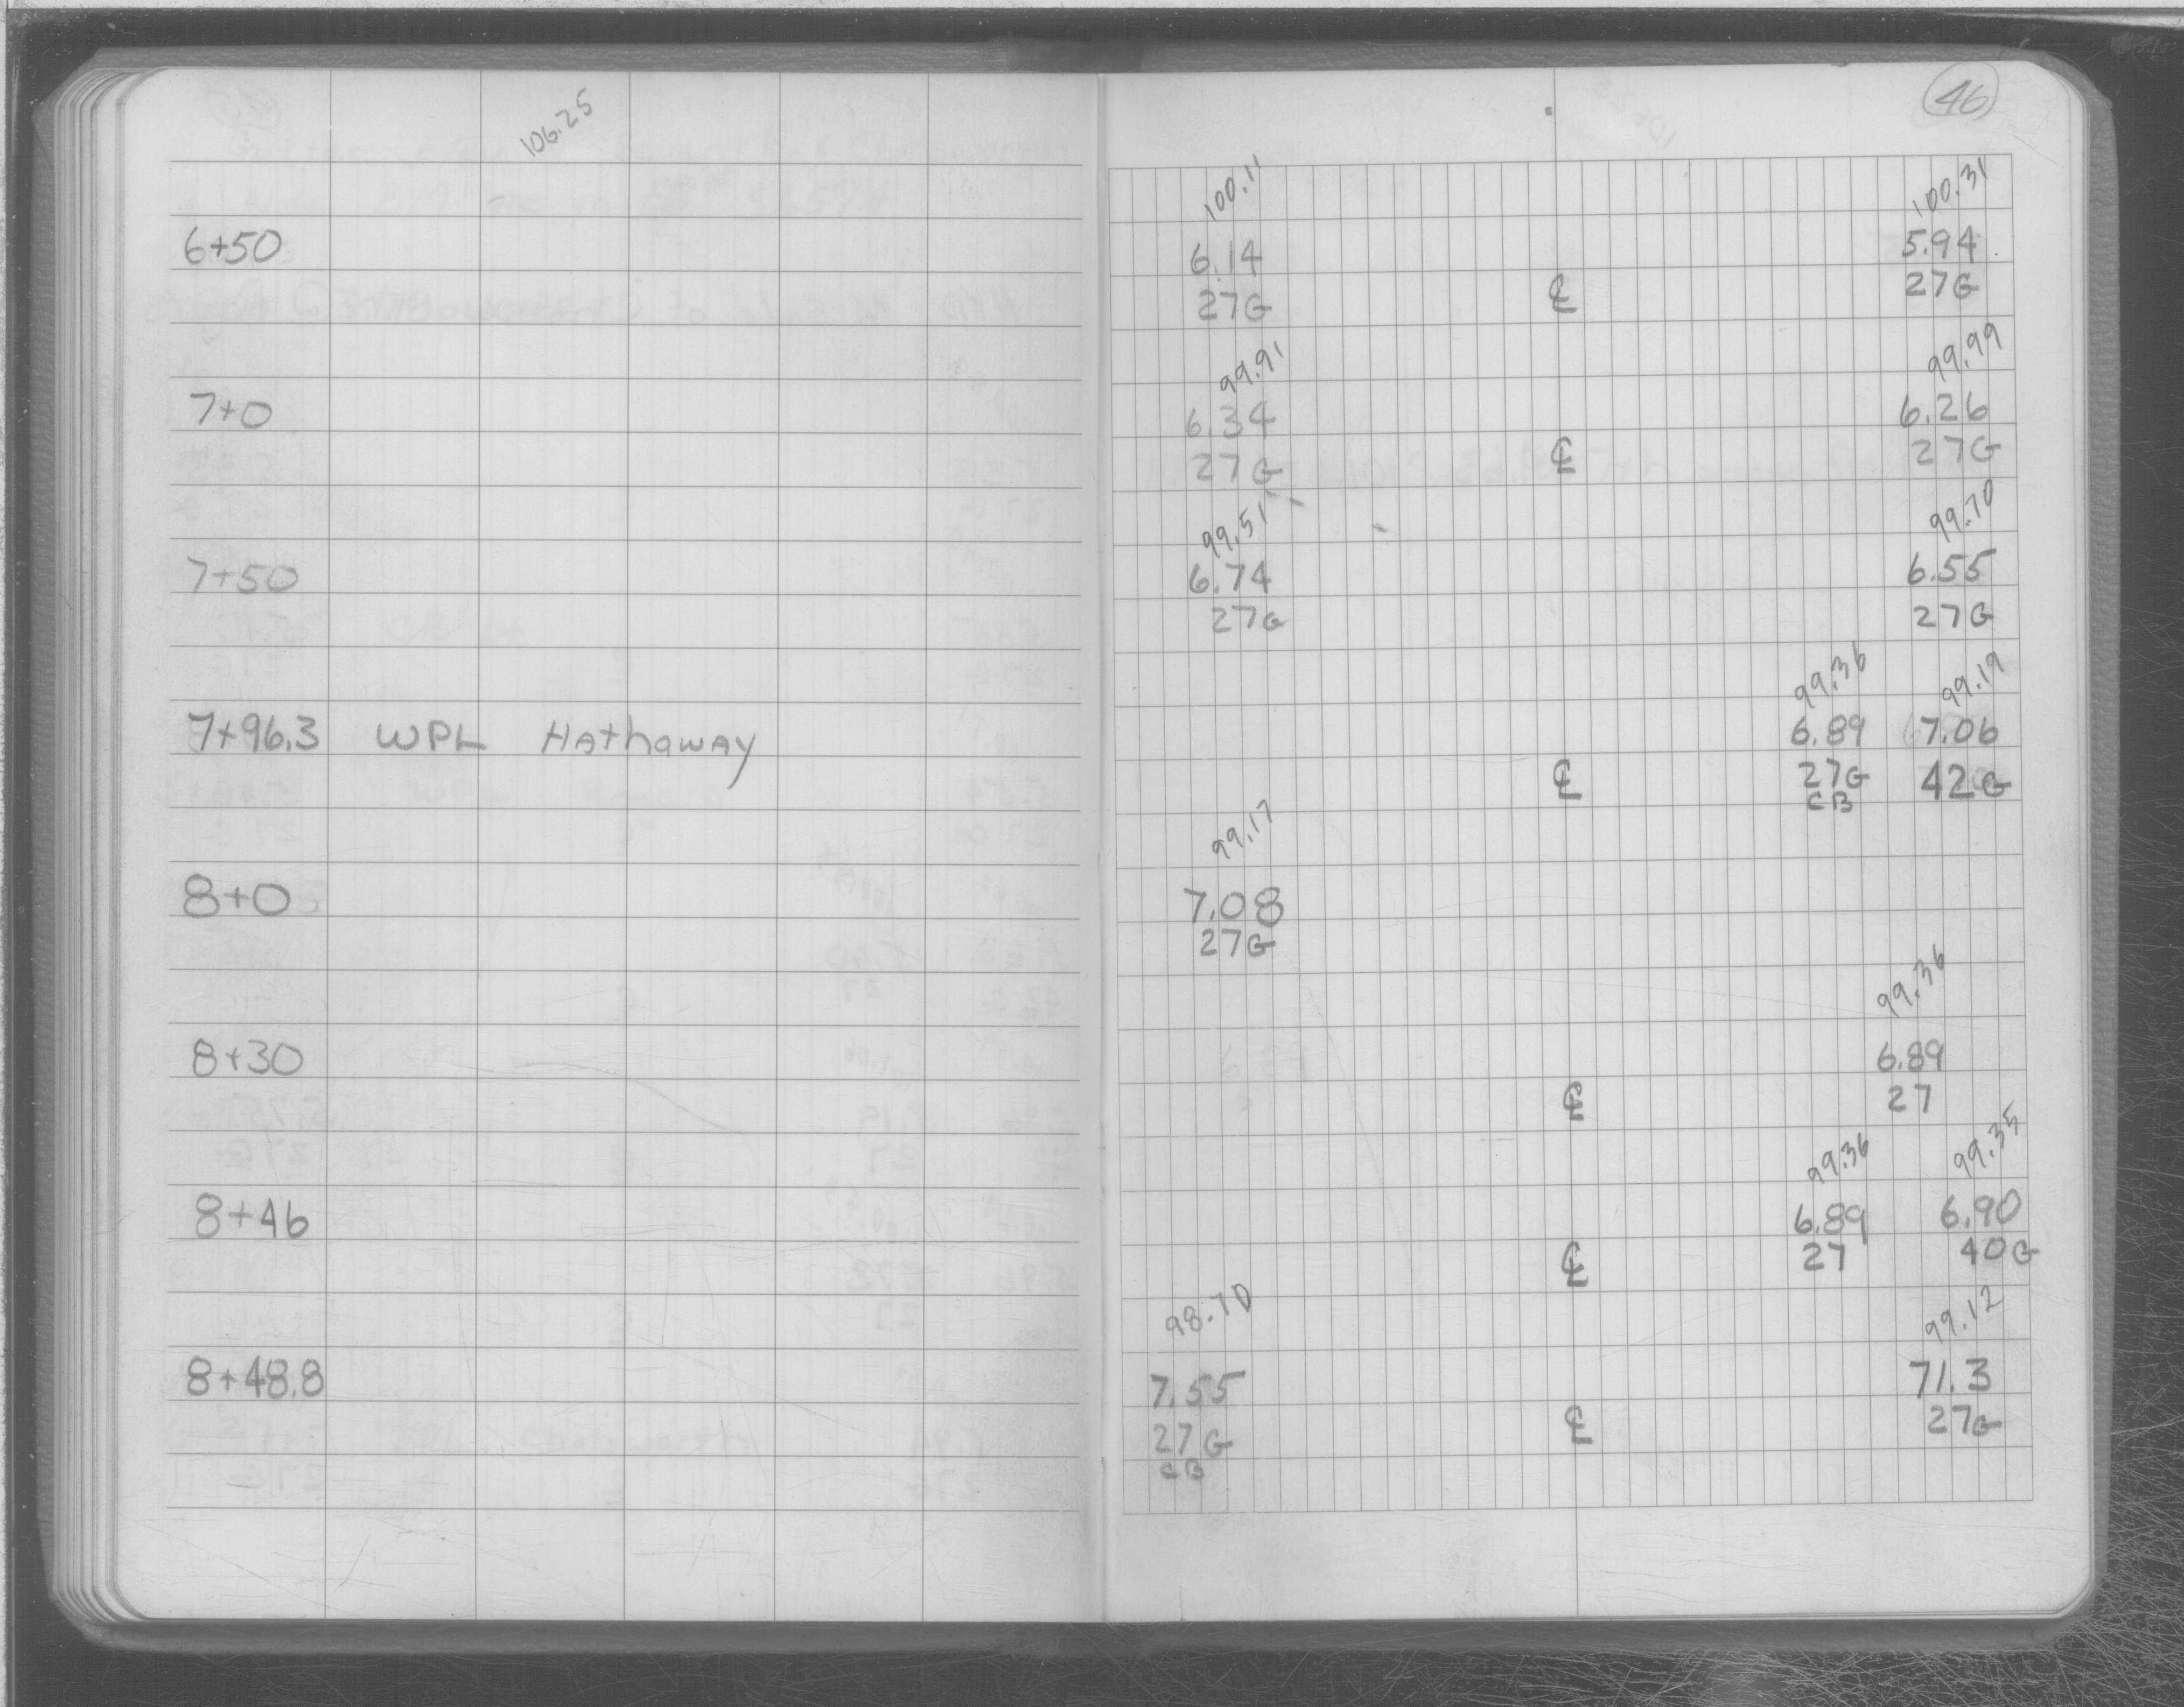 46
106.25
100.11 100.31
6+50 6.14 5.94
27G ℄ 27G
99.91 99.99
7+0 6.34 6.26
27G ℄ 27G
99.51 99.70
7+50 6.74 6.55
27G 27G
99.36 99.19
7+96.3 WPL Hathaway 6.89 7.06
℄ 27G 42G
CB
99.17
8+0 7.08
27G
99.36
8+30 6.89
℄ 27
99.36 99.35
8+46 6.89 6.90
℄ 27 40G
98.70 99.12
8+48.8 7.55 71.3
27G ℄ 27G
CB